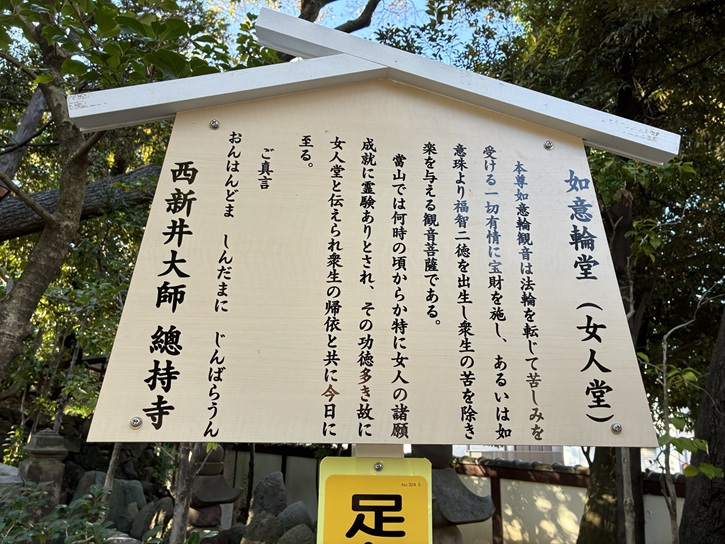 如意輪堂(女人堂)
本尊如意輪観音は法輪を転じて苦しみを
受ける一切有情に宝財を施し、あるいは如
意珠より福智二徳を出生し衆生の苦を除き
楽を与える観音菩薩である。
當山では何時の頃からか特に女人の諸願
成就に霊験ありとされ、その功徳多き故に
女人堂と伝えられ衆生の帰依と共に今日に
至る。
ご真言
おんはんどま しんだまに じんばらうん
西新井大師 總持寺
足